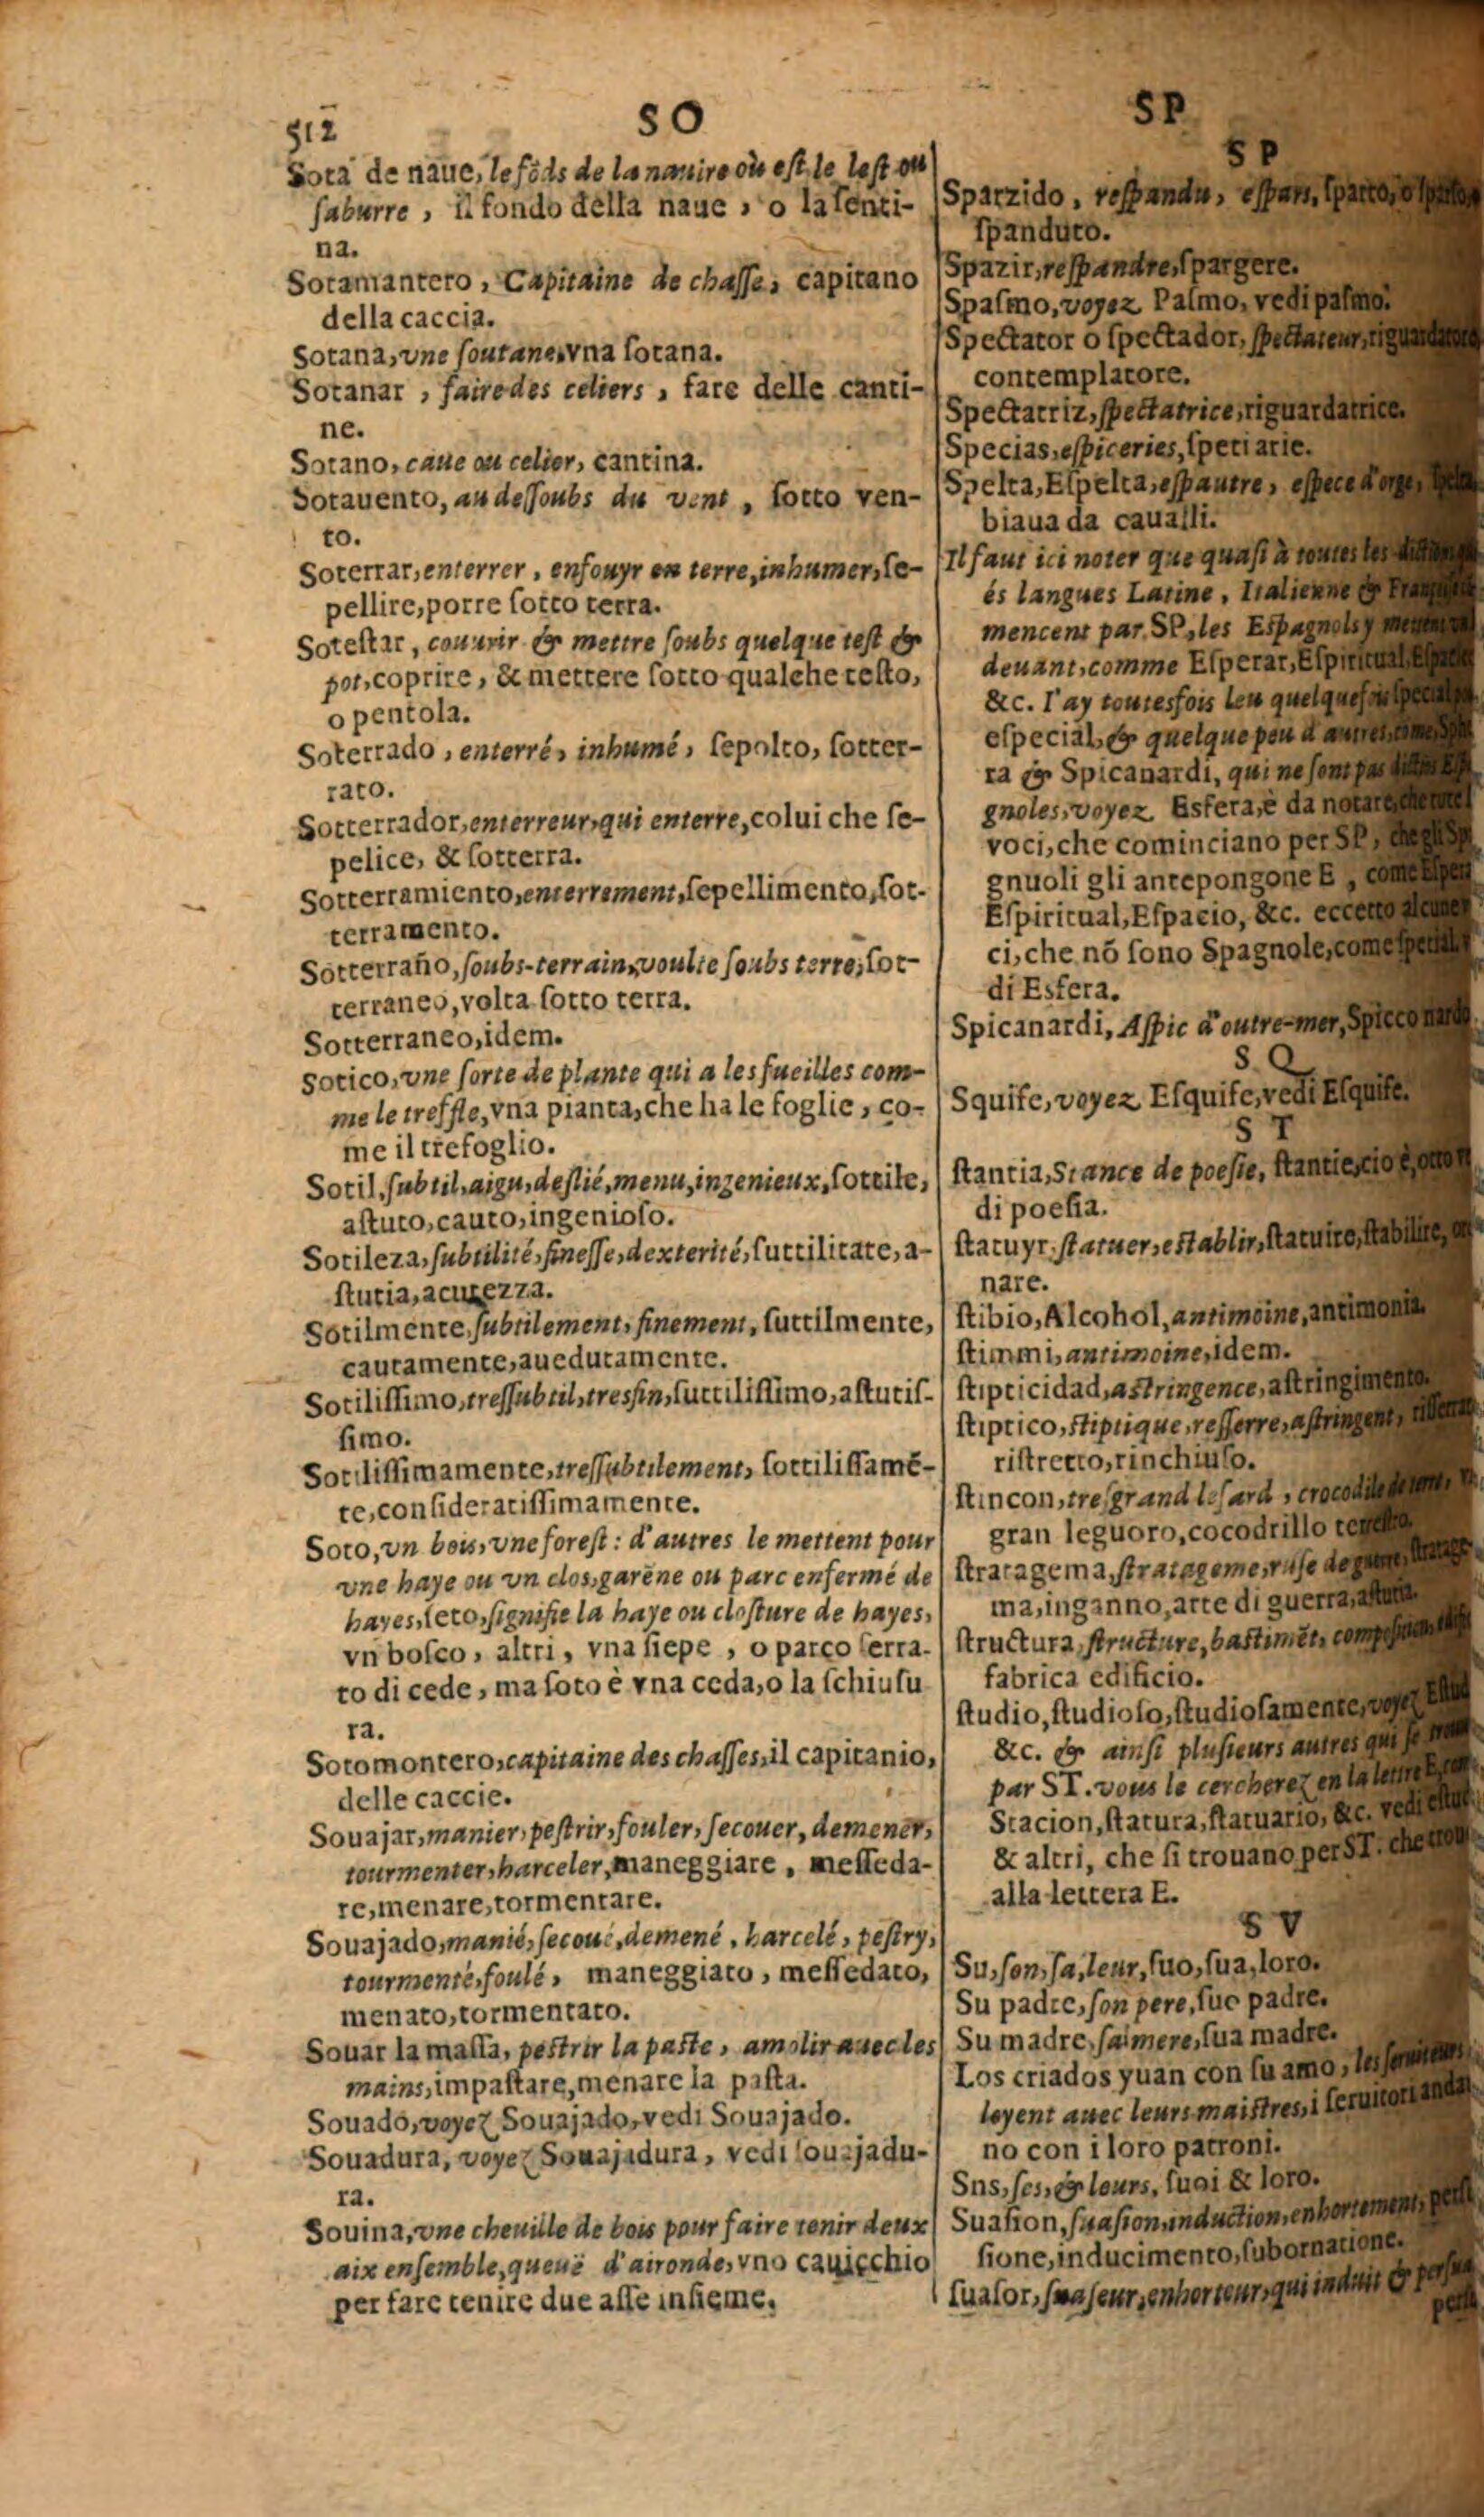 512
SO
SP
Sota de naue, le fõds de la nauire où est le lest ou
saburre, il fondo della naue, o la senti-
na.
Sotamantero, Capitaine de chasse, capitano
della caccia.
Sotana, vne soutane, vna sotana.
Sotanar, faire des celiers, fare delle canti-
ne.
Sotano, caue ou celier, cantina.
Sotauento, au dessoubs du vent, sotto ven-
to.
Soterrar, enterrer, enfouyr en terre, inhumer, se-
pellire, porre sotto terra.
Sotestar, couurir & mettre soubs quelque test &
pot, coprire, & mettere sotto qualche testo,
o pentola.
Soterrado, enterré, inhumé, sepolto, sotter-
rato.
Sotterrador, enterreur, qui enterre, colui che se-
pelice, & sotterra.
Sotterramiento, enterrement, sepellimento, sot-
terramento.
Sotterraño, soubs-terrain, voulte soubs terre, sot-
terraneo, volta sotto terra.
Sotterraneo, idem.
Sotico, vne sorte de plante qui a les fueilles com-
me le treffle, vna pianta, che ha le foglie, co-
me il trefoglio.
Sotil, subtil, aigu, deslié, menu, ingenieux, sottile,
astuto, cauto, ingenioso.
Sotileza, subtilité, finesse, dexterité, suttilitate, a-
stutia, acutezza.
Sotilmente, subtilement, finement, suttilmente,
cautamente, auedutamente.
Sotilissimo, tressubtil, tresfin, suttilissimo, astutis-
simo.
Sotilissimamente, tressubtilement, sottilissamẽ-
te, consideratissimamente.
Soto, vn bois, vne forest: d'autres le mettent pour
vne haye ou vn clos, garẽne ou parc enfermé de
hayes, seto, signifie la haye ou closture de hayes,
vn bosco, altri, vna siepe, o parco serra-
to di cede, ma soto è vna ceda, o la schiusu
ra.
Sotomontero, capitaine des chasses, il capitanio,
delle caccie.
Souajar, manier, pestrir, fouler, secouer, demener,
tourmenter, harceler, maneggiare, messeda-
re, menare, tormentare.
Souajado, manié, secoué, demené, harcelé, pestry,
tourmenté, foulé, maneggiato, messedato,
menato, tormentato.
Souar la massa, pestrir la paste, amolir auec les
mains, impastare, menare la pasta.
Souado, voyez Souajado, vedi Souajado.
Souadura, voyez Souajadura, vedi souajadu-
ra.
Souina, vne cheuille de bois pour faire tenir deux
aix ensemble, queuë d'aironde, vno cauicchio
per fare tenire due asse insieme.
SP
Sparzido, respandu, espars, sparto, o
spanduto.
Spazir, respandre, spargere.
Spasmo, voyez Pasmo, vedi pasmo.
Spectator o spectador, spectateur, riguardatore,
contemplatore.
Spectatriz, spectatrice, riguardatrice.
Specias, espiceries, speti arie.
Spelta, Espelta, espautre, espece d'orge,
biaua da caualli.
Il faut ici noter que quasi à toutes les
és langues Latine, Italienne &
mencent par SP, les Espagnols y mettent
deuant, comme Esperar, Espiritual,
&c. I'ay toutesfois leu quelquefois special
especial, & quelque peu d'autres, cõme,
ra & Spicanardi, qui ne sont pas
gnoles, voyez Esfera, è da notare, che
voci, che cominciano per SP, che gli
gnuoli gli antepongone E, come
Espiritual, Espacio, &c. eccetto
ci, che nõ sono Spagnole, come special,
di Esfera.
Spicanardi, Aspic d'outre-mer, Spicco nardo
SQ
Squife, voyez Esquife, vedi Esquife.
ST
stantia, Stance de poesie, stantie, cio è,
di poesia.
statuyr, statuer, establir, statuire, stabilire,
nare.
stibio, Alcohol, antimoine, antimonia.
stimmi, antimoine, idem.
stipticidad, astringence, astringimento.
stiptico, stiptique, resserre, astringent,
ristretto, rinchiuso.
stincon, tresgrand lesard, crocodile
gran leguoro, cocodrillo terrestro.
stratagema, stratageme, ruse de guerre,
ma, inganno, arte di guerra, astutia.
structura, structure, bastimẽt,
fabrica edificio.
studio, studioso, studiosamente, voyez
&c. & ainsi plusieurs autres qui se
par ST. vous le cercherez en la lettre E,
Stacion, statura, statuario, &c. vedi
& altri, che si trouano per ST. che
alla lettera E.
SV
Su, son, sa, leur, suo, sua, loro.
Su padre, son pere, suo padre.
Su madre, sa mere, sua madre.
Los criados yuan con su amo, les seruiteurs
loyent auec leurs maistres, i seruitori
no con i loro patroni.
Sns, ses, & leurs, suoi & loro.
Suasion, suasion, induction, enhortement,
sione, inducimento, subornatione.
suasor, suaseur, enhorteur, qui induit &